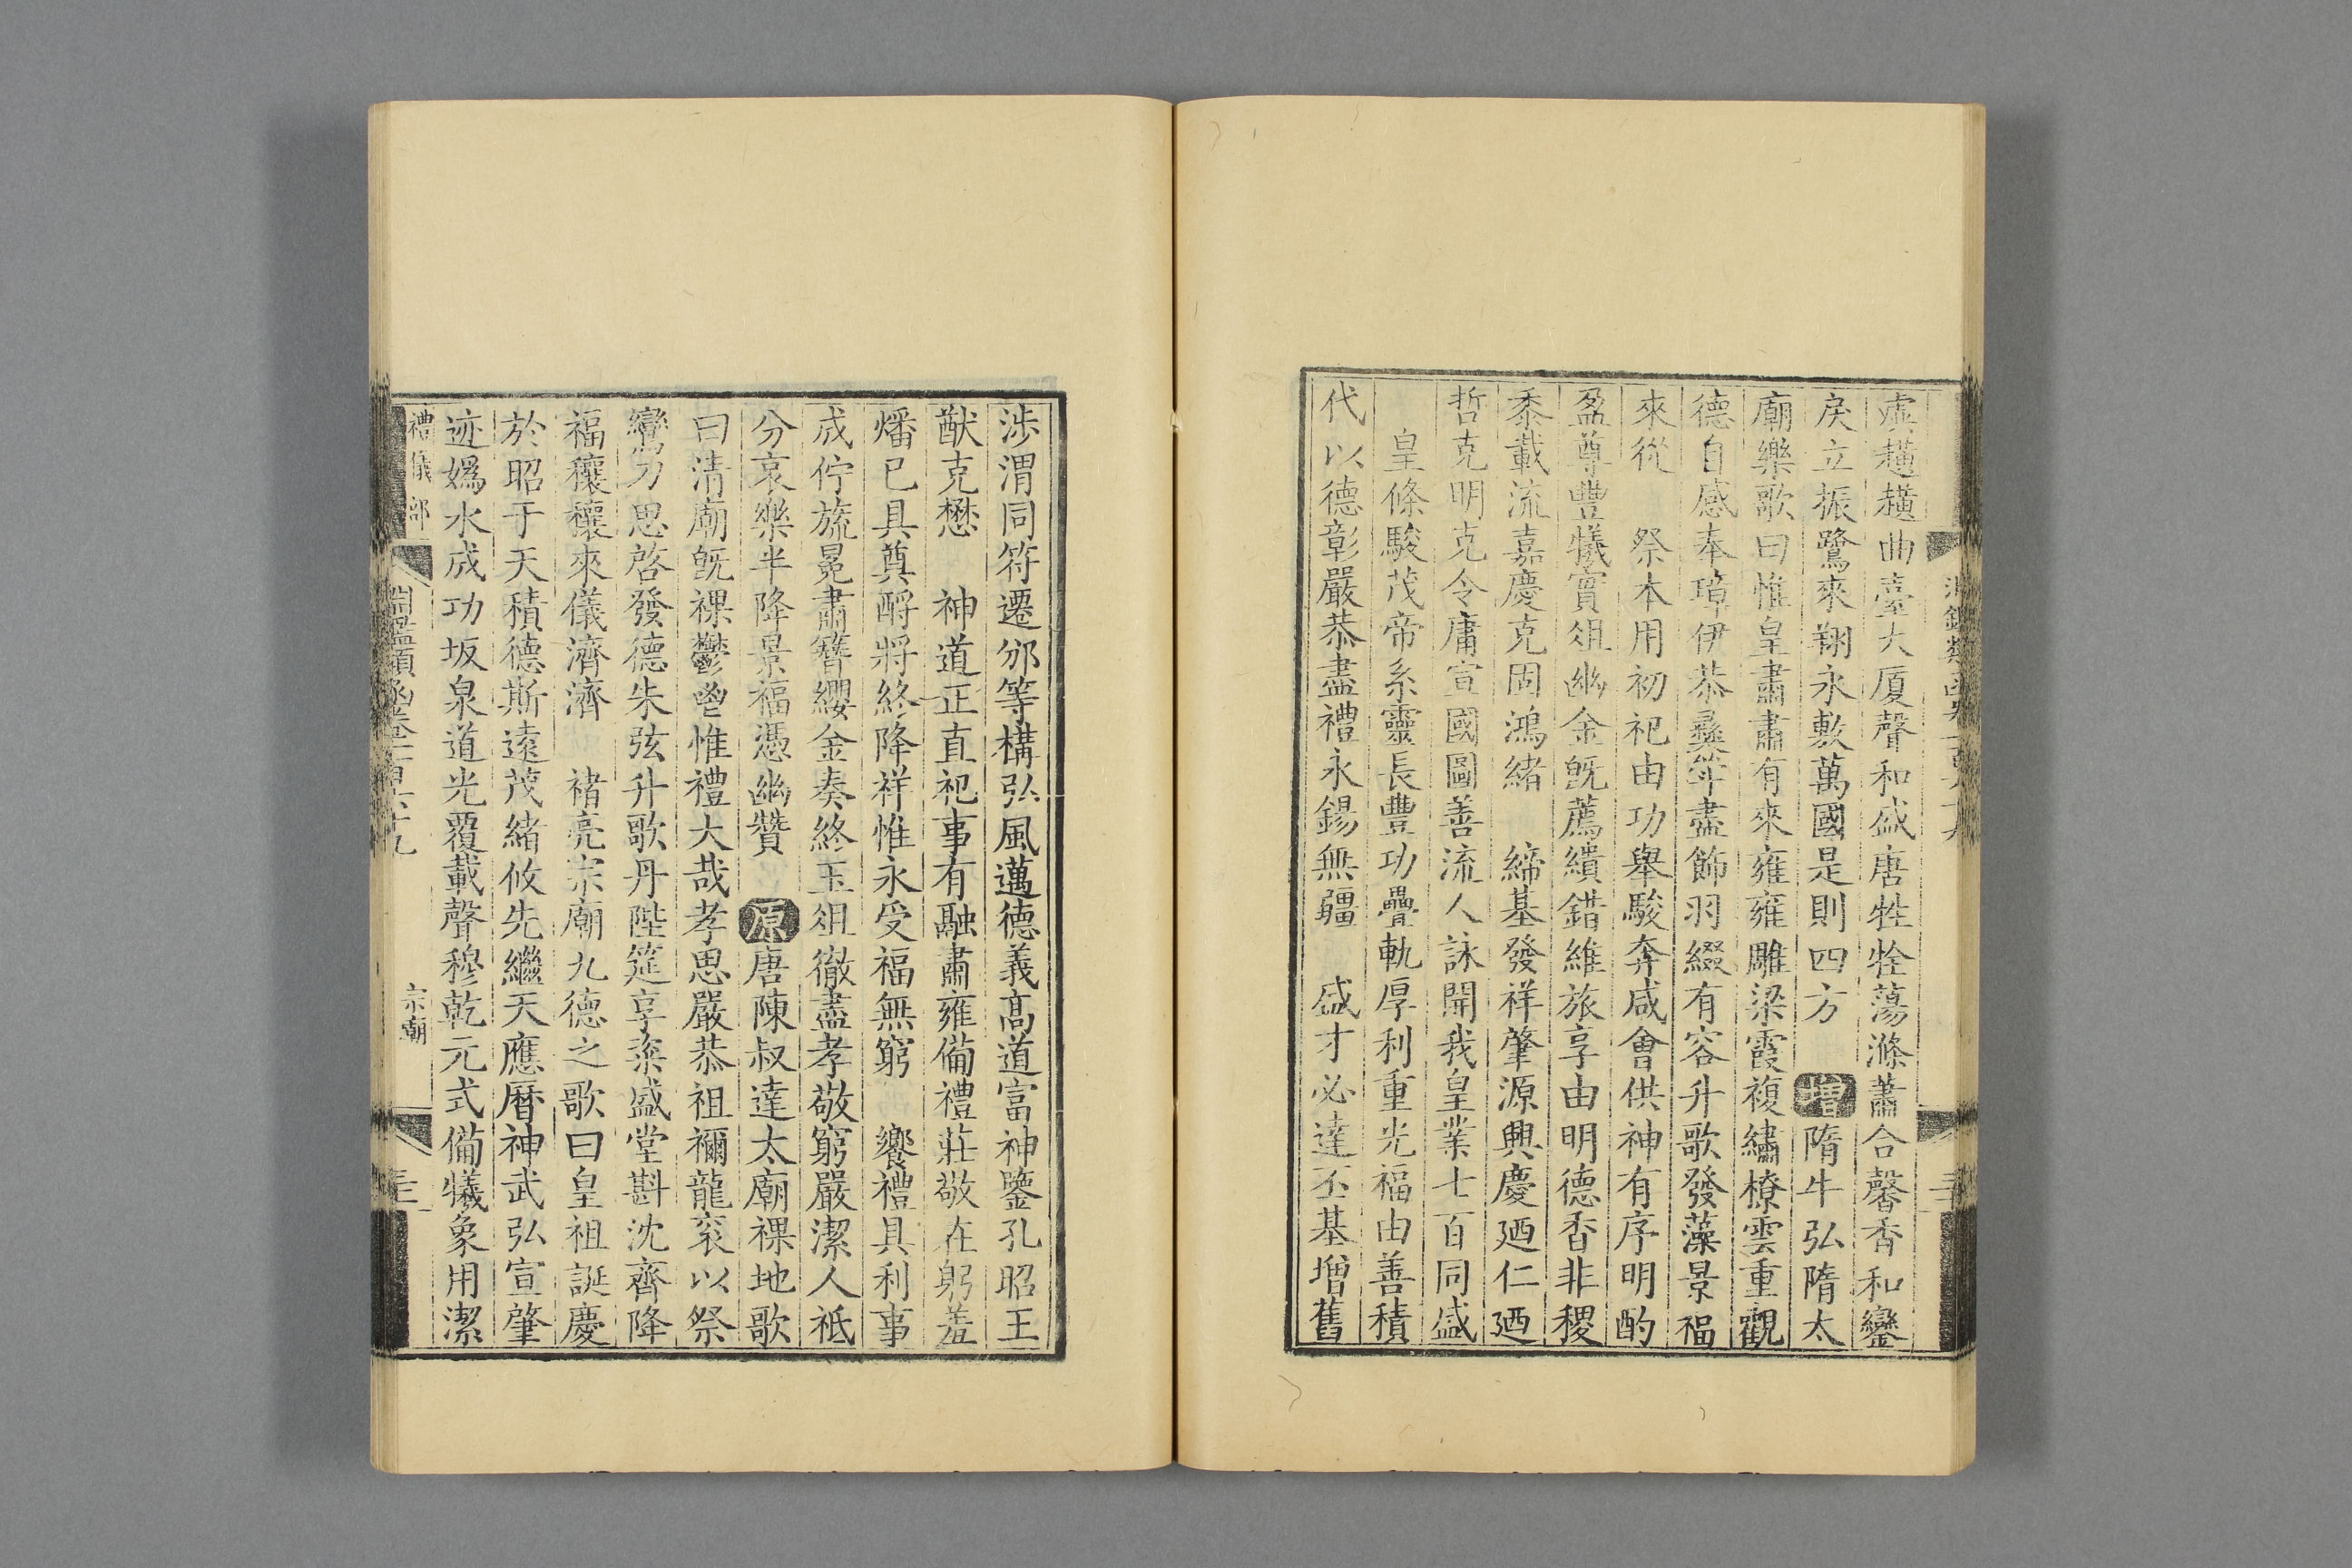 虡橫橫曲臺大厦聲和盛唐牲牷蕩滌蕭合馨香和鑾
戾立振鷺來翔永敷萬國是則四方 增隋牛弘隋太
廟樂歌曰惟皇肅肅有來雍雍雕梁霞複繡橑雲重觀
德自感奉璋伊恭彝斝盡飾羽綴有容升歌發藻景福
來從 祭本用初祀由功舉駿奔咸會供神有序明酌
盈尊豐犧實俎幽金旣薦繢錯維旅享由明德香非稷
黍載流嘉慶克固鴻緒 締基發祥肇源興慶廼仁廼
哲克明克令庸宣國圖善流人詠開我皇業七百同盛
皇條駿茂帝系靈長豐功疊軌厚利重光福由善積
代以德彰嚴恭盡禮永錫無疆 盛才必達丕基增舊
涉渭同符遷邠等構弘風邁德義高道富神鑒孔昭王
猷克懋 神道正直祀事有融肅雍備禮莊敬在躬羞
燔已具奠酹將終降祥惟永受福無窮 饗禮具利事
成佇旒冕肅簪纓金奏終玉俎徹盡孝敬窮嚴潔人祗
分哀樂半降景福憑幽贊 原唐陳叔達太廟祼地歌
曰清廟旣祼鬱鬯惟禮大哉孝思嚴恭祖禰龍衮以祭
鸞刀思啓發德朱弦升歌丹陛筵享粢盛堂斟沈齊降
福穰穰來儀濟濟 褚亮宗廟九德之歌曰皇祖誕慶
於昭于天積德斯遠茂緒攸先繼天應曆神武弘宣肇
迹嬀水成功坂泉道光覆載聲穆乾元式備犧象用潔
禮儀部
淵鑑類函卷一百六十九
宗廟